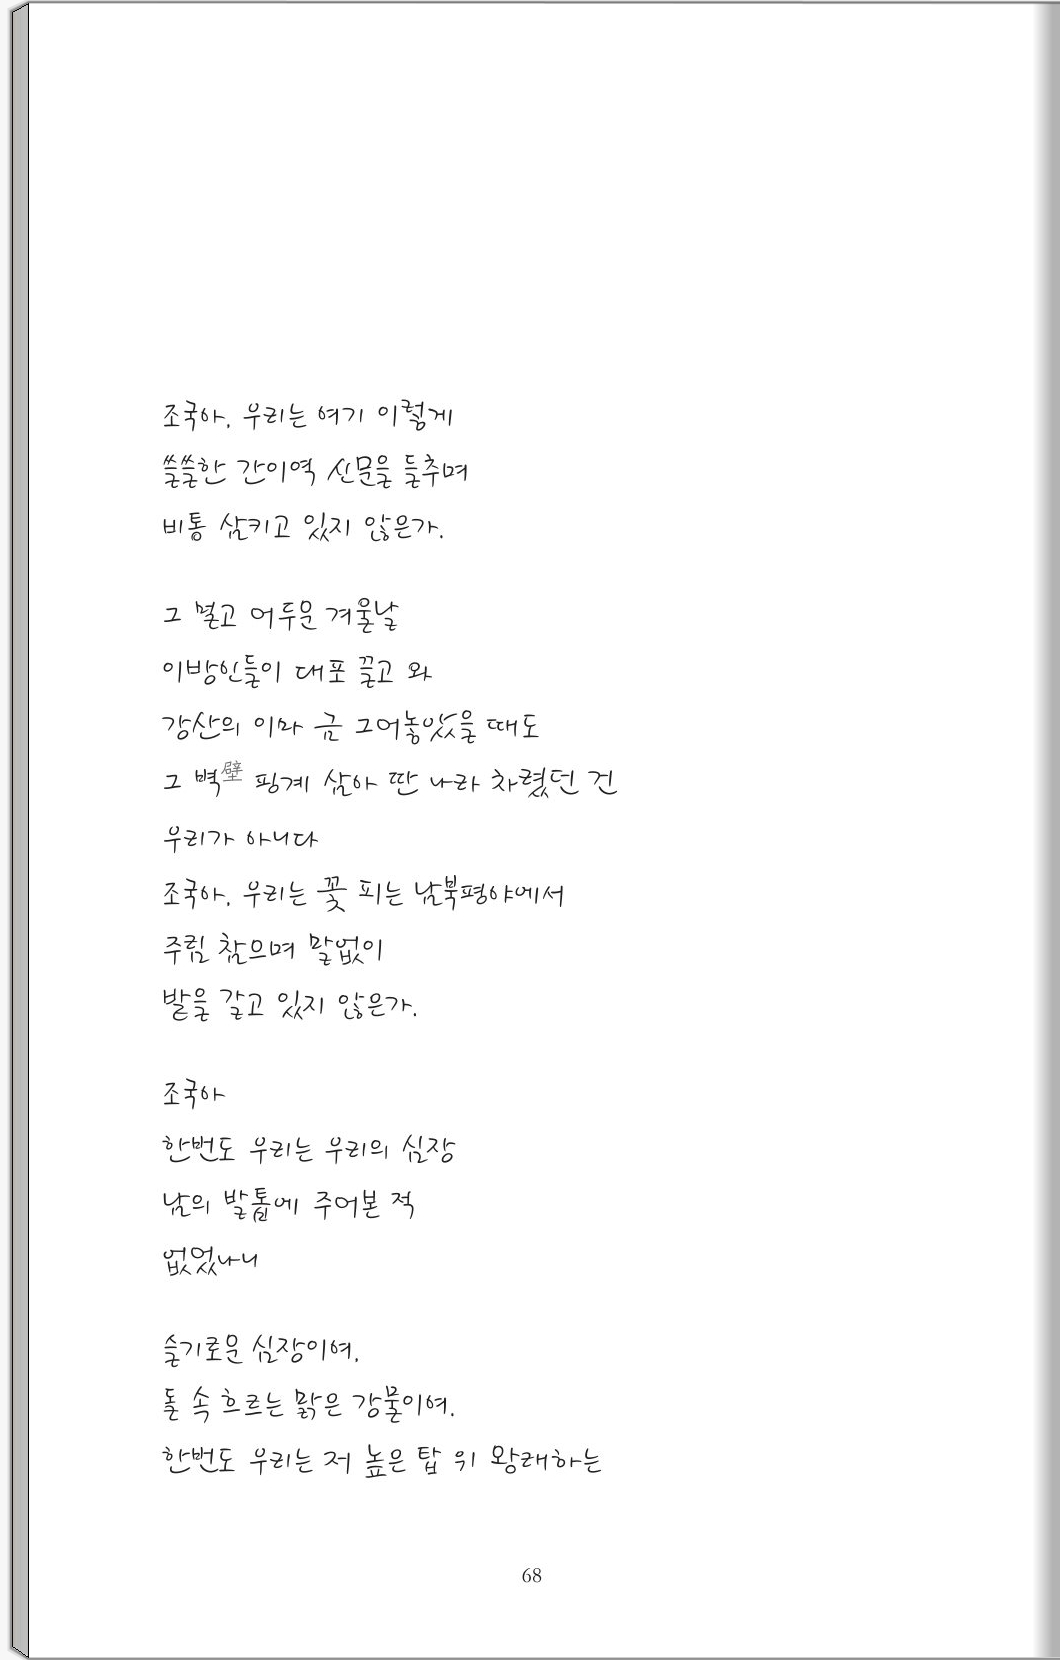 조국아, 우리는 여기 이렇게
쓸쓸한 간이역 신문을 들추며
비통 삼키고 있지 않은가.
그 멀고 어두운 겨울날
이방인들이 대포 끌고 와
강산의 이마 금 그어놓았을 때도
그 벽壁 핑계 삼아 딴 나라 차렸던 건
우리가 아니다
조국아, 우리는 꽃 피는 남북평야에서
주림 참으며 말없이
밭을 갈고 있지 않은가.
조국아
한번도 우리는 우리의 심장
남의 발톱에 주어본 적
없었나니
슬기로운 심장이여,
돌 속 흐르는 맑은 강물이여.
한번도 우리는 저 높은 탑 위 왕래하는
68